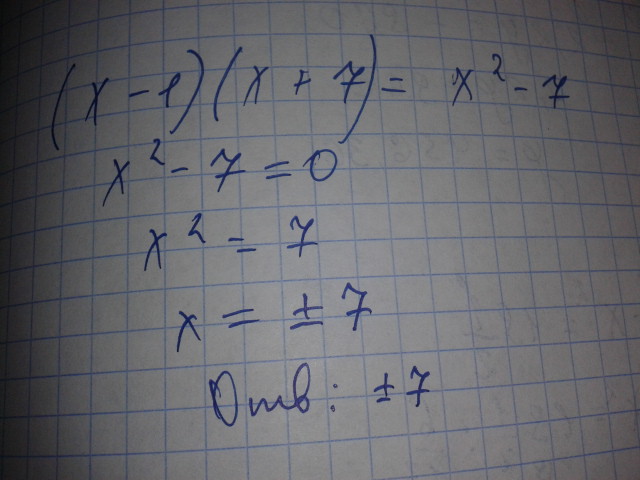 (x - 1)(x + 7) = x² - 7
x² - 7 = 0
x² = 7
x = ± 7
Отв: ± 7